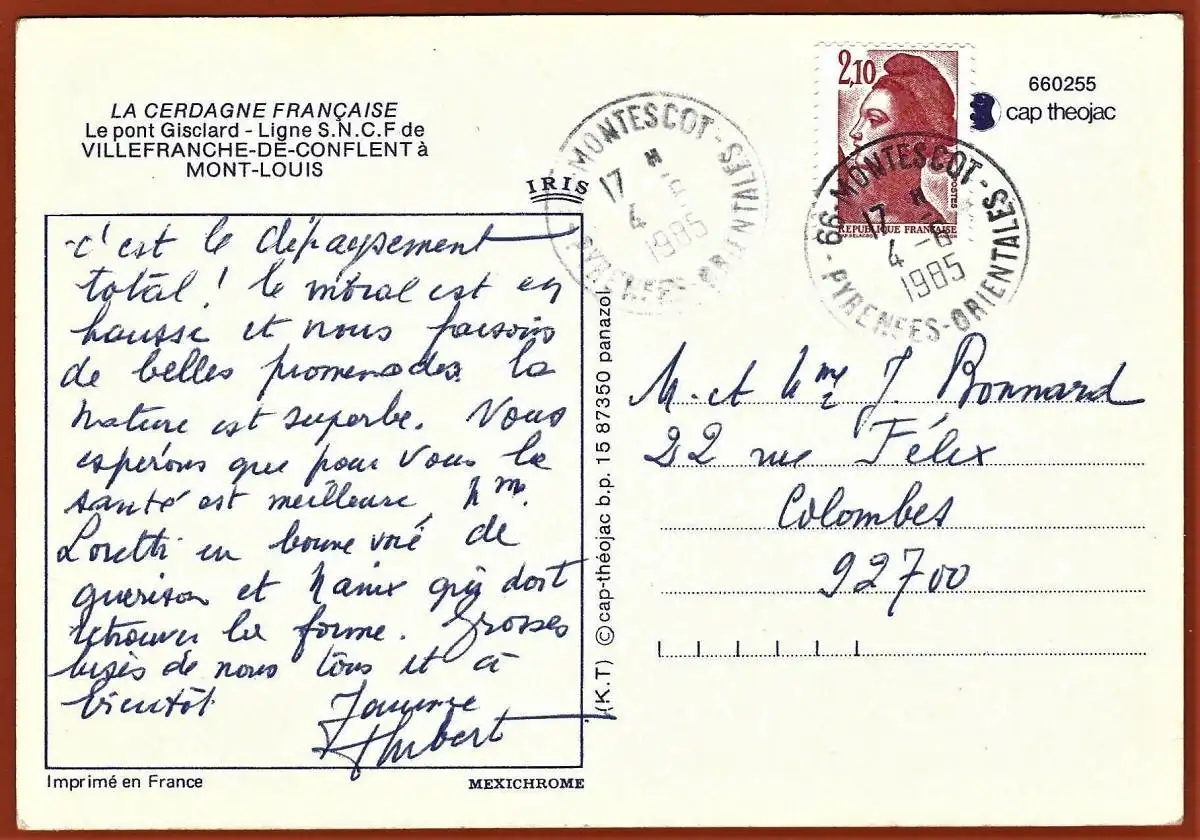 LA CERDAGNE FRANÇAISE
Le pont Gisclard - Ligne S.N.C.F de
VILLEFRANCHE-DE-CONFLENT à
MONT-LOUIS
IRIS
c'est le dépaysement
total ! le moral est en
hausse et nous faisons
de belles promenades la
nature est superbe. Vous
espérons que pour vous la
santé est meilleure, Mme
Loretti en bonne voie de
guérison et qui doit
retrouver la forme. Grosses
bises de nous tous et à
bientôt
Hubert
Imprimé en France
MEXICHROME
(K.T) © cap-théojac b.p. 15 87350 panazol
MONTESCOT - PYRENEES-ORIENTALES
17 H
4 -6
1985
2,10
POSTES
REPUBLIQUE FRANÇAISE
66 - MONTESCOT - PYRENEES-ORIENTALES
17 H
4 -6
1985
660255
cap theojac
M. et Mme J. Bonnard
22 rue Félix
Colombes
92700